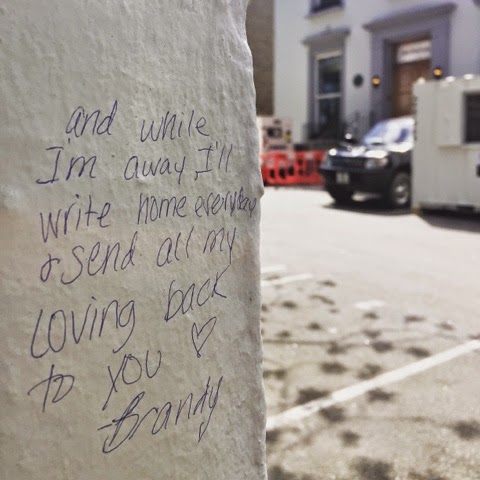 and while
I'm away I'll
write home everyday
& send all my
loving back
to you ♡
-Brandy